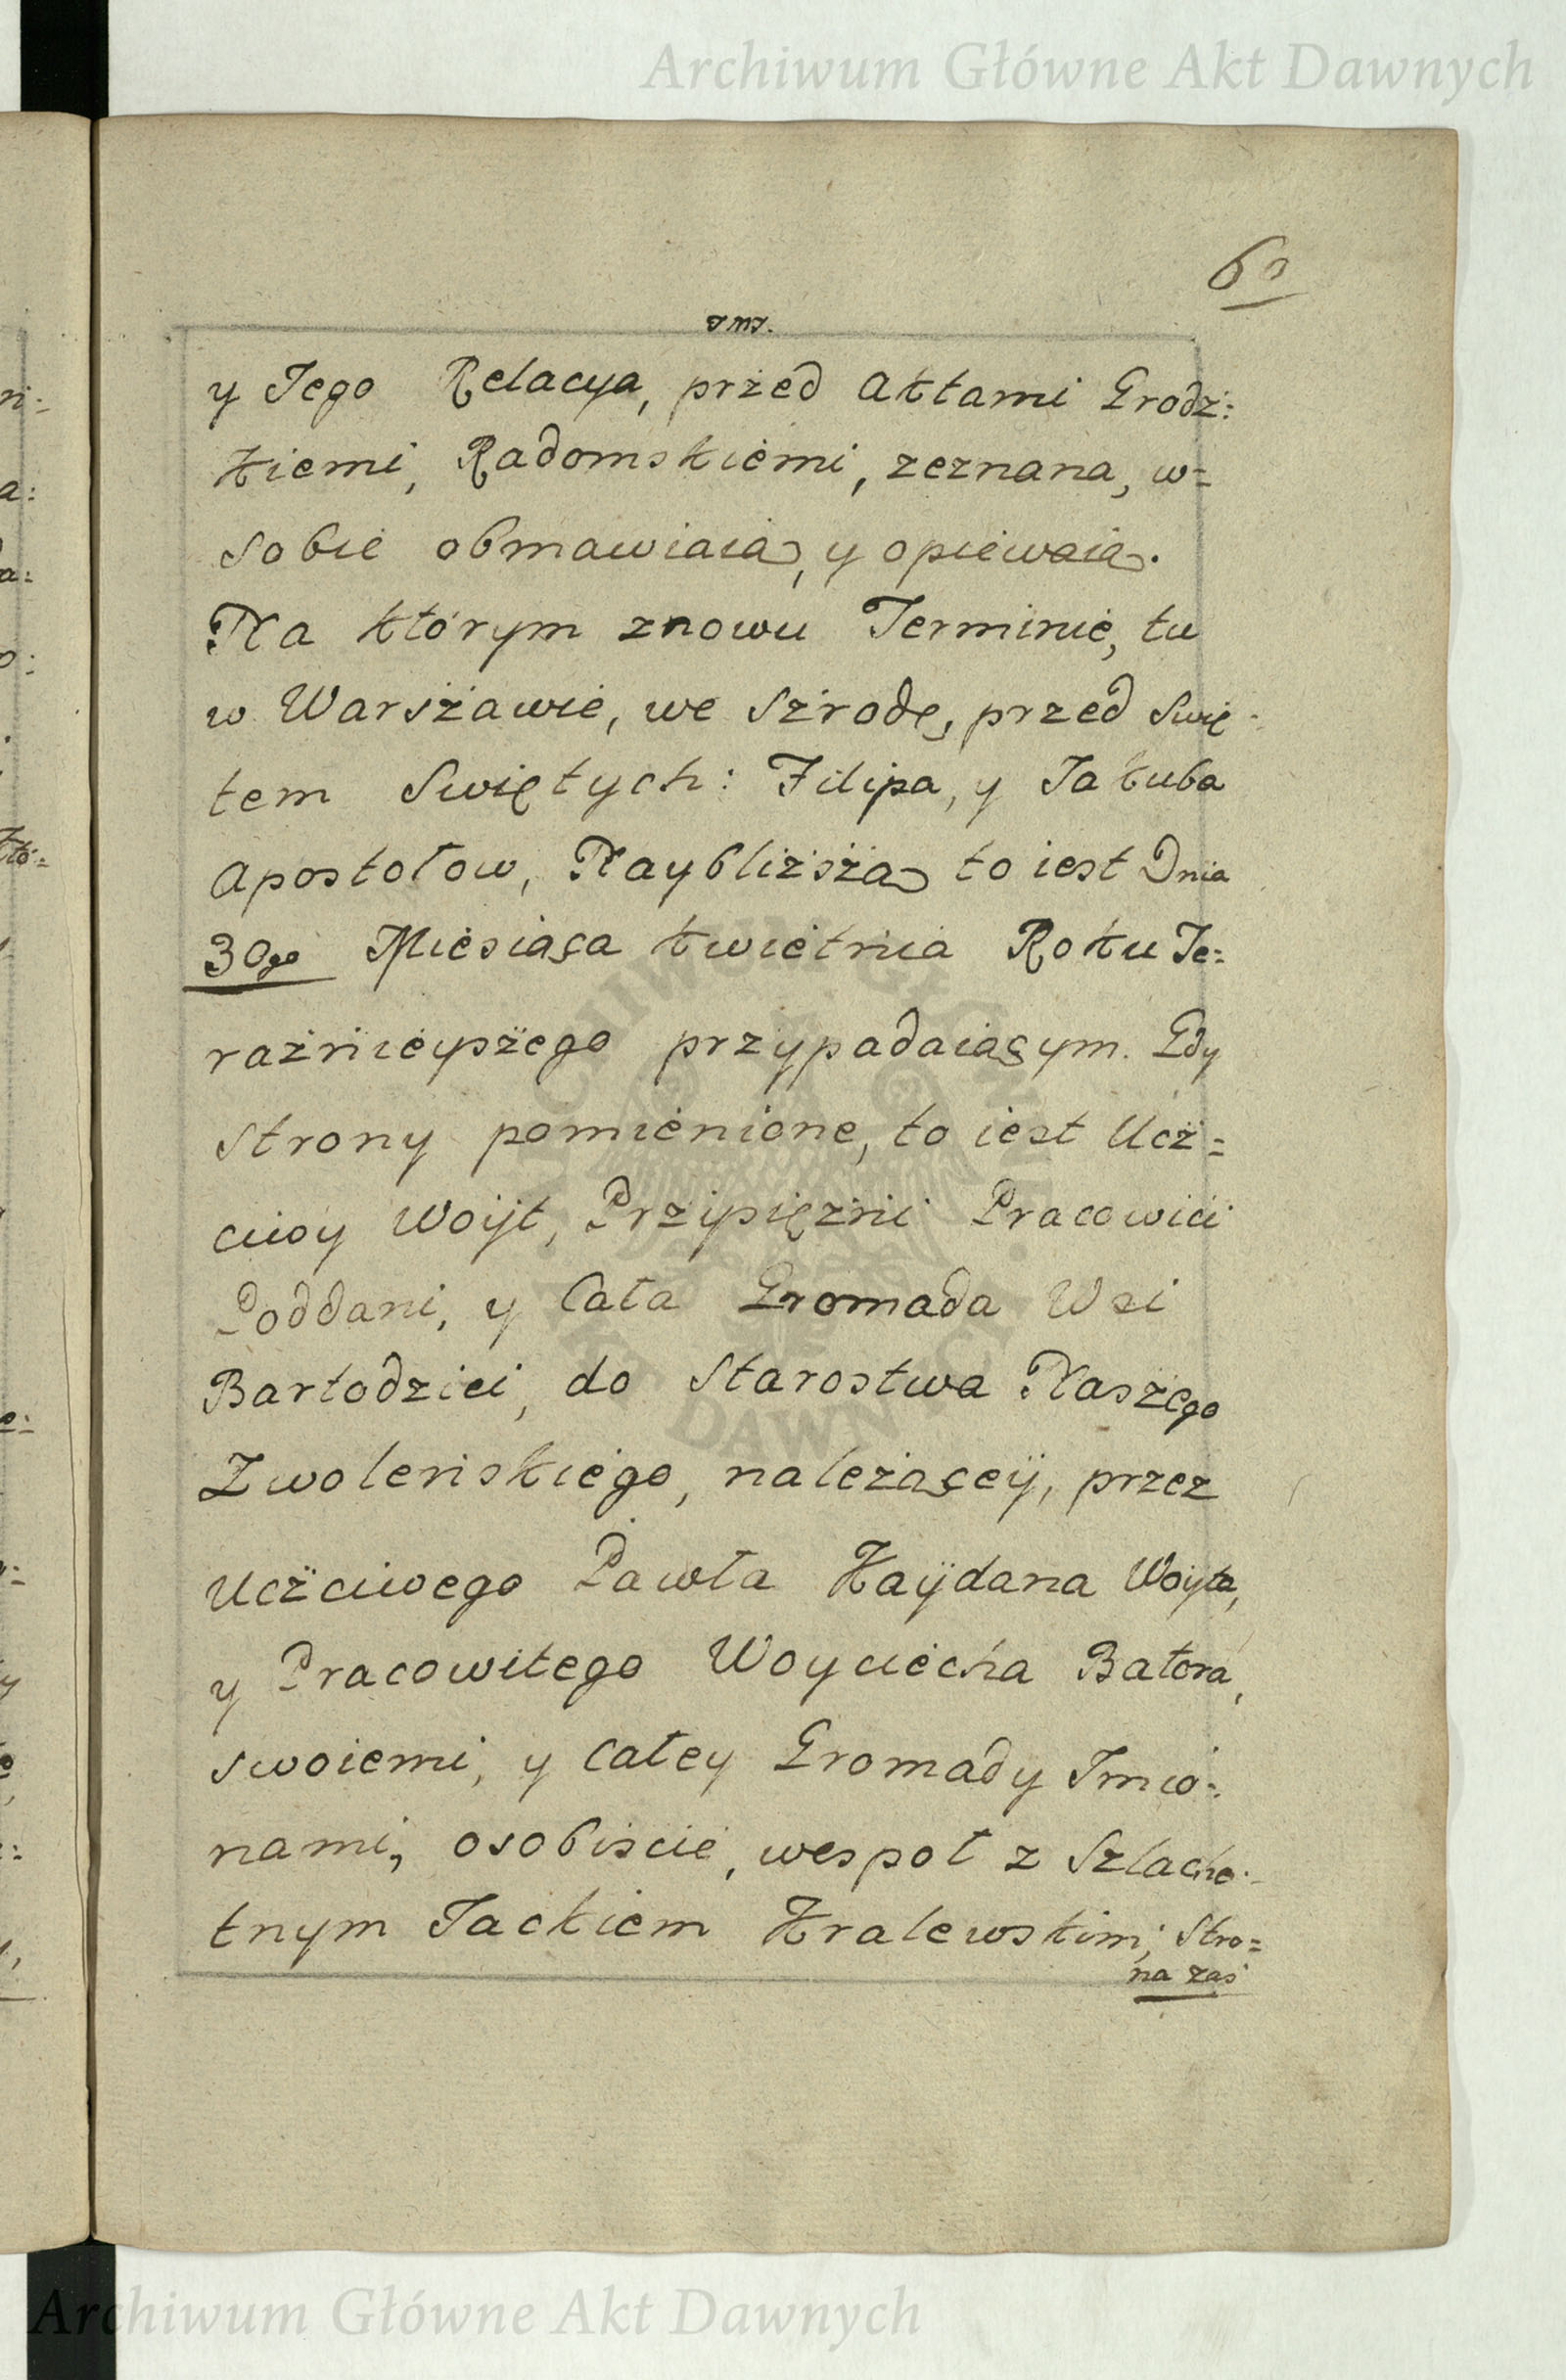 Archiwum Główne Akt Dawnych
6
y Jego Relacya, przed Aktami Grodz:
kiemi, Radomskiemi, zeznana, w=
sobie obmawiaią, y opiewaią.
Na którym znowu Terminie, tu
w Warszawie, we Szrodę, przed Swię
tem Swiętych: Filipa, y Jakuba
Apostołow, Naybliższą to iest Dnia
30go Miesiąca Kwietnia Roku Te=
raźnieyszego przypadaiącym. Gdy
Strony pomienione, to iest Ucz=
ciwy Woyt, Przysiężni Pracowici
Poddani, y Cała Gromada Wsi
Bartodziei, do Starostwa Naszego
Zwoleńskiego, należącey, przez
Uczciwego Pawła Kaÿdana Woyta,
y Pracowitego Woyciecha Batora,
swoiemi, y Całey Gromady Imio=
nami, osobiscie, wespoł z Szlache=
tnym Jackiem Kralewskim; Stro=
na zas
Archiwum Główne Akt Dawnych